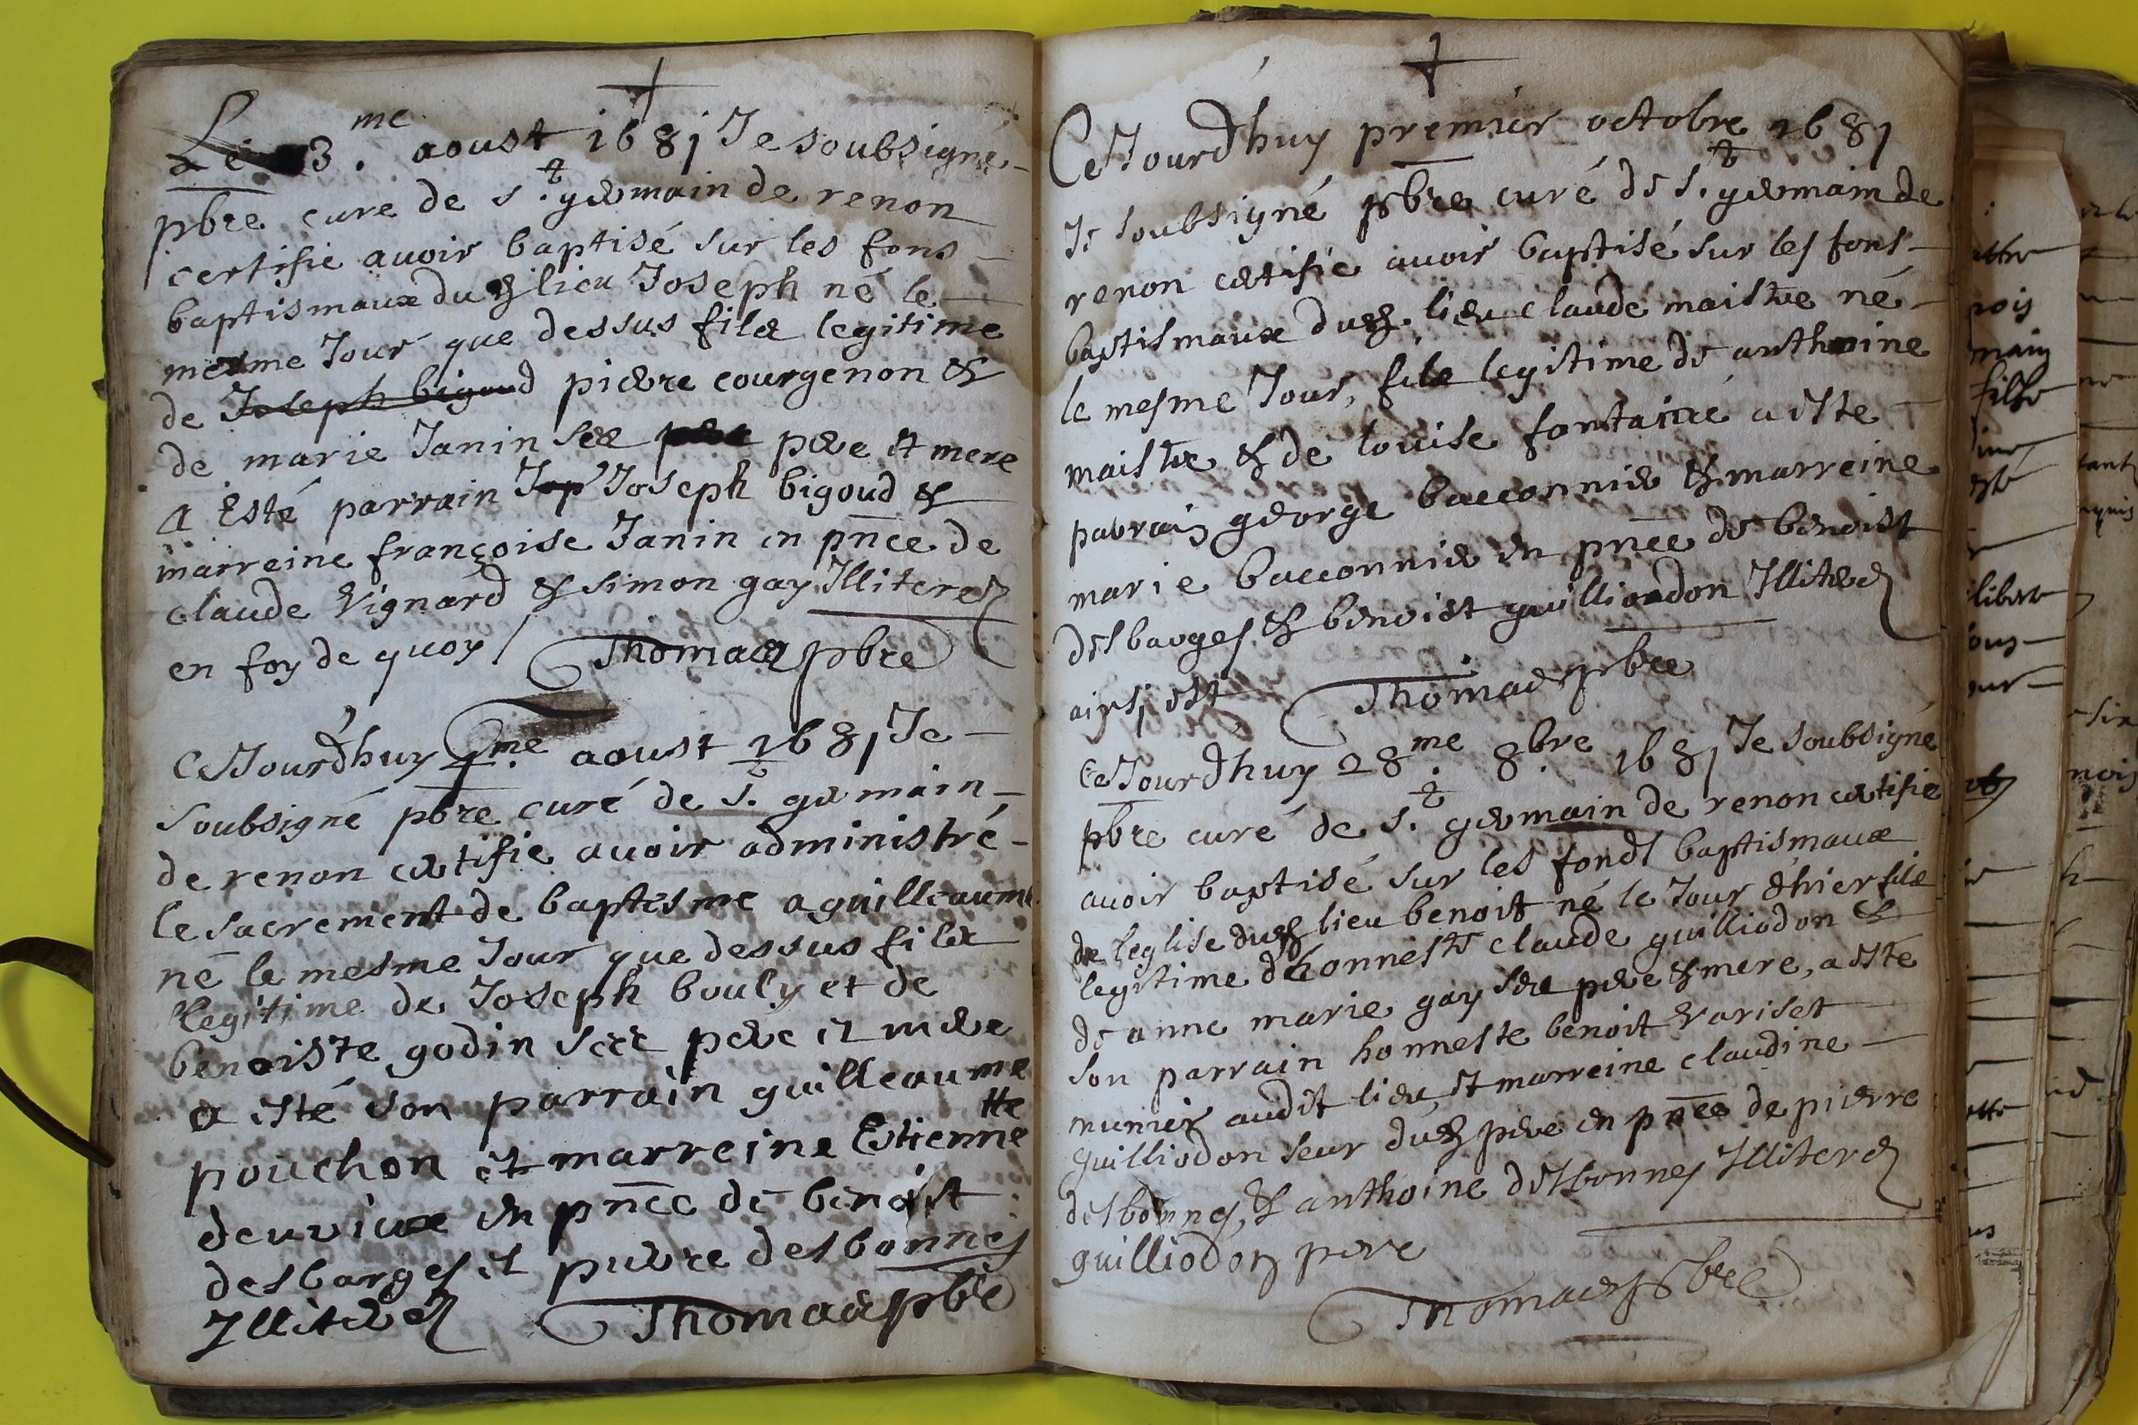 Le 3.me aoust 1681 Je soubsigné
pbre cure de st. germain de renon
certifie avoir baptisé sur les fons
baptismaux dud lieu Joseph né le
mesme Jour que dessus filx legitime
de Joseph bigoud pierre courgenon &
de marie Janin ses pere pere et mere
A Esté parrain Jop Joseph bigoud &
marreine françoise Janin en pnce de
claude Vignard & simon gay Illiteres
en foy de quoy / Thomas pbre
CeJourdhuy me aoust 1681 Je
soubsigné pbre curé de st. germain
de renon certifie avoir administré
le sacrement de baptesme a guilleaume
né le mesme Jour que dessus filx
legitime de Joseph bouly et de
benoiste godin ses pere et mere
a esté son parrain guilleaume
pouchon et marreine Estiennette
deuvieux en pnce de benoist
desbarges et pierre desbonnes
Illiteres Thomas pbre
CeJourdhuy premier octobre 1681
Je soubsigné pbre curé de st. germain de
renon certifie avoir baptisé sur les fons
baptismaux dud. lieu claude maistre né
le mesme Jour, filx legitime de anthoine
maistre & de louise fontaine a este
parrain george bacconnier & marreine
marie bacconnier en pnce de benoist
desbarges & benoist guilliodon Illiteres
ainsj est Thomas pbre
CeJourdhuy 28.me 8.bre 1681 Je soubsigné
pbre curé de st. germain de renon certifie
avoir baptisé sur les fonds baptismaux
de leglise dud lieu benoit né le Jour dhier filx
legitime dhonneste claude guilliodon &
de anne marie gay ses pere & mere, a este
son parrain honneste benoit Variset
munier audit lieu, et marreine claudine
guilliodon seur dud pere en pnce de pierre
desbonnes, & anthoine desbonnes Illiteres
guilliodon pere
Thomas pbre